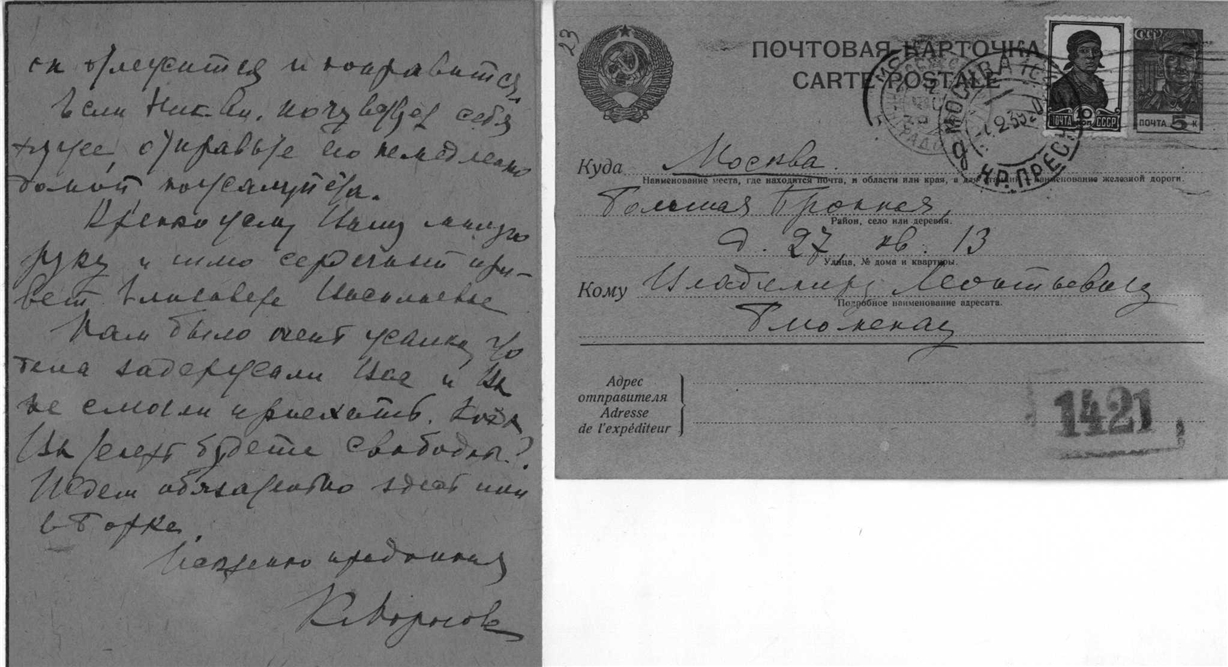 он облегчится и поправится.
Если Ник. Ив. почувствует себя
хуже, отправьте его немедленно
домой, пожалуйста.
Крепко жму Вашу милую
руку и шлю сердечный при-
вет Елизавете Васильевне
Нам было очень жалко, что
дела задержали Вас и Вы
не смогли приехать. Когда
Вы будете свободны?
Ждем обязательно здесь или
в Борке.
Искренно преданный
Н. Морозов
23
ПОЧТОВАЯ КАРТОЧКА
CARTE POSTALE
СССР
ПОЧТА 10 коп. СССР
ПОЧТА 5 К
МОСКВА
КР. ПРЕСН
Куда Москва.
Наименование места, где находится почта, и области или края, а для станций и наименование железной дороги.
Большая Бронная,
Район, село или деревня.
д. 27 кв. 13
Улица, № дома и квартиры.
Кому Владимиру Леонтьевичу
Подробное наименование адресата.
Адрес
отправителя
Adresse
de l'expéditeur
1421